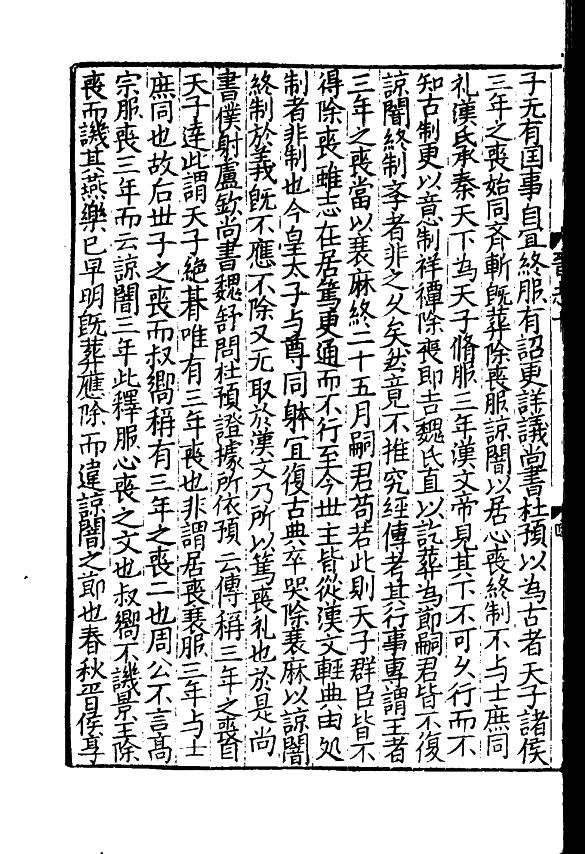 子无有国事自宜終服有詔更詳議尚書杜預以為古者天子諸侯
三年之喪始同齊斬既葬除喪服諒闇以居心喪終制不与士庶同
礼漢氏承秦天下為天子脩服三年漢文帝見其下不可久行而不
知古制更以意制祥禫除喪即吉魏氏直以訖葬為節嗣君皆不復
諒闇終制斈者非之久矣然竟不推究經傳考其行事專謂王者
三年之喪當以衰麻終二十五月嗣君苟若此則天子群臣皆不
得除喪雖志在居篤更逼而不行至今世主皆從漢文輕典由処
制者非制也今皇太子与尊同躰宜復古典卒哭除衰麻以諒闇
終制於義既不應不除又无取於漢文乃所以篤喪礼也於是尚
書僕射盧欽尚書魏舒問杜預證據所依預云傳稱三年之喪自
天子達此謂天子絶朞唯有三年喪也非謂居喪衰服三年与士
庶同也故后世子之喪而叔嚮稱有三年之喪二也周公不言髙
宗服喪三年而云諒闇三年此釋服心喪之文也叔嚮不譏景王除
喪而譏其燕樂已早明既葬應除而違諒闇之節也春秋晉侯享